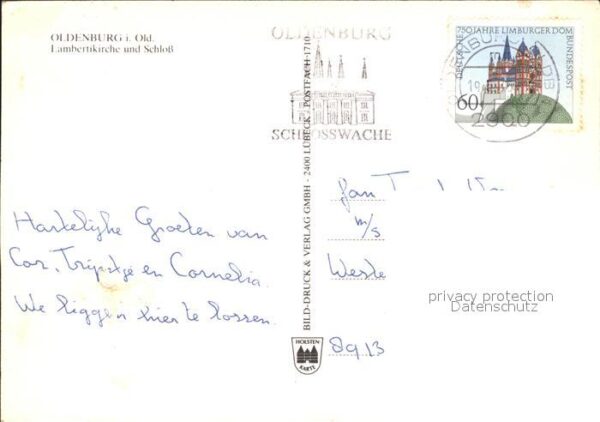 OLDENBURG i. Old.
Lambertikirche und Schloß
OLDENBURG
SCHLOSSWACHE
DEUTSCHE BUNDESPOST
750 JAHRE LIMBURGER DOM
60
2900
BILD-DRUCK & VERLAG GMBH - 2400 LÜBECK - POSTFACH 1710
Hartelijke Groeten van
Cor, Trijntje en Cornelia.
We liggen hier te lossen.
Jan T
m/s
8913
HOLSTEN
KARTE
privacy protection
Datenschutz